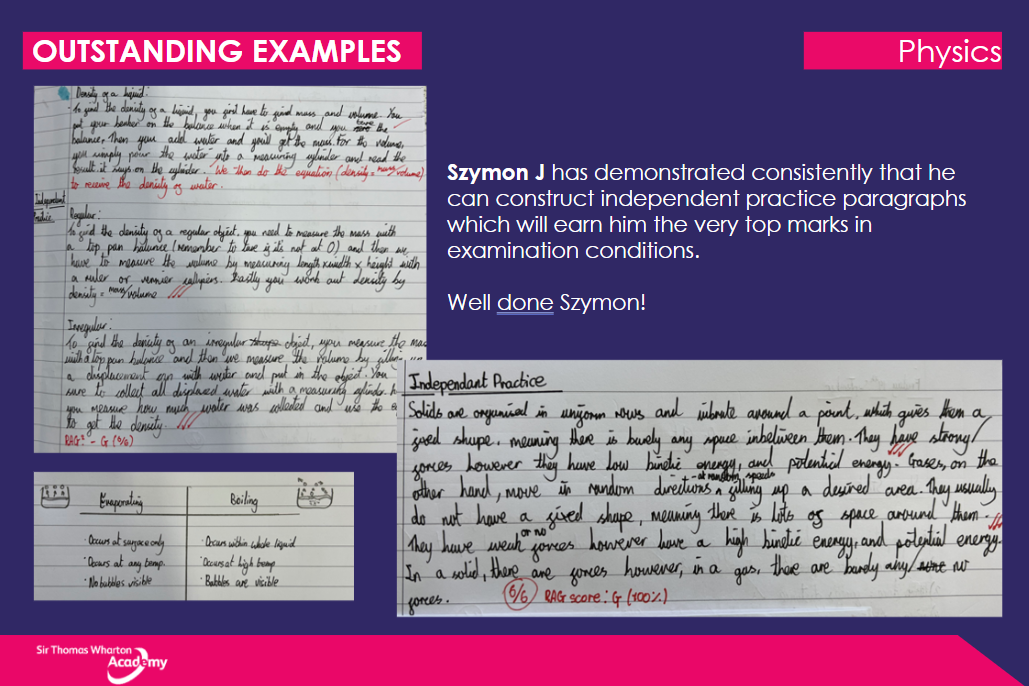 OUTSTANDING EXAMPLES
Physics
Density of a liquid:
· To find the density of a liquid, you first have to find mass and volume. You
put your beaker on the balance when it is empty and you tare the
balance. Then you add water and you'll get the mass. For the volume,
you simply pour the water into a measuring cylinder and read the
result it says on the cylinder. We then do the equation (density = mass/volume)
to receive the density of water.
Independant
Practice
Regular:
To find the density of a regular object, you need to measure the mass with
a top pan balance (remember to tare if it's not at 0) and then we
have to measure the volume by measuring length x width x height with
a ruler or vernier callipers. Lastly you work out density by
density = mass/volume
Irregular:
To find the density of an irregular object, you measure the mass
with a top pan balance and then we measure the volume by filling up
a displacement can with water and put in the object. You
sure to collect all displaced water with a measuring cylinder.
you measure how much water was collected and use the
to get the density.
RAG: - G (%)
Szymon J has demonstrated consistently that he
can construct independent practice paragraphs
which will earn him the very top marks in
examination conditions.
Well done Szymon!
Independant Practice
Solids are organised in uniform rows and vibrate around a point, which gives them a
fixed shape, meaning there is barely any space inbetween them. They have strong
forces however they have low kinetic energy, and potential energy. Gases, on the
other hand, move in random directions -at random speeds filling up a desired area. They usually
do not have a fixed shape, meaning there is lots of space around them.
They have weak or no forces however have a high kinetic energy, and potential energy.
In a solid, there are forces however, in a gas, there are barely any/ no
forces.
6/6 RAG score: G (100%)
Evaporating
Boiling
· Occurs at surface only
· Occurs within whole liquid
· Occurs at any temp.
· Occurs at high temp
· No bubbles visible
· Bubbles are visible
Sir Thomas Wharton
Academy